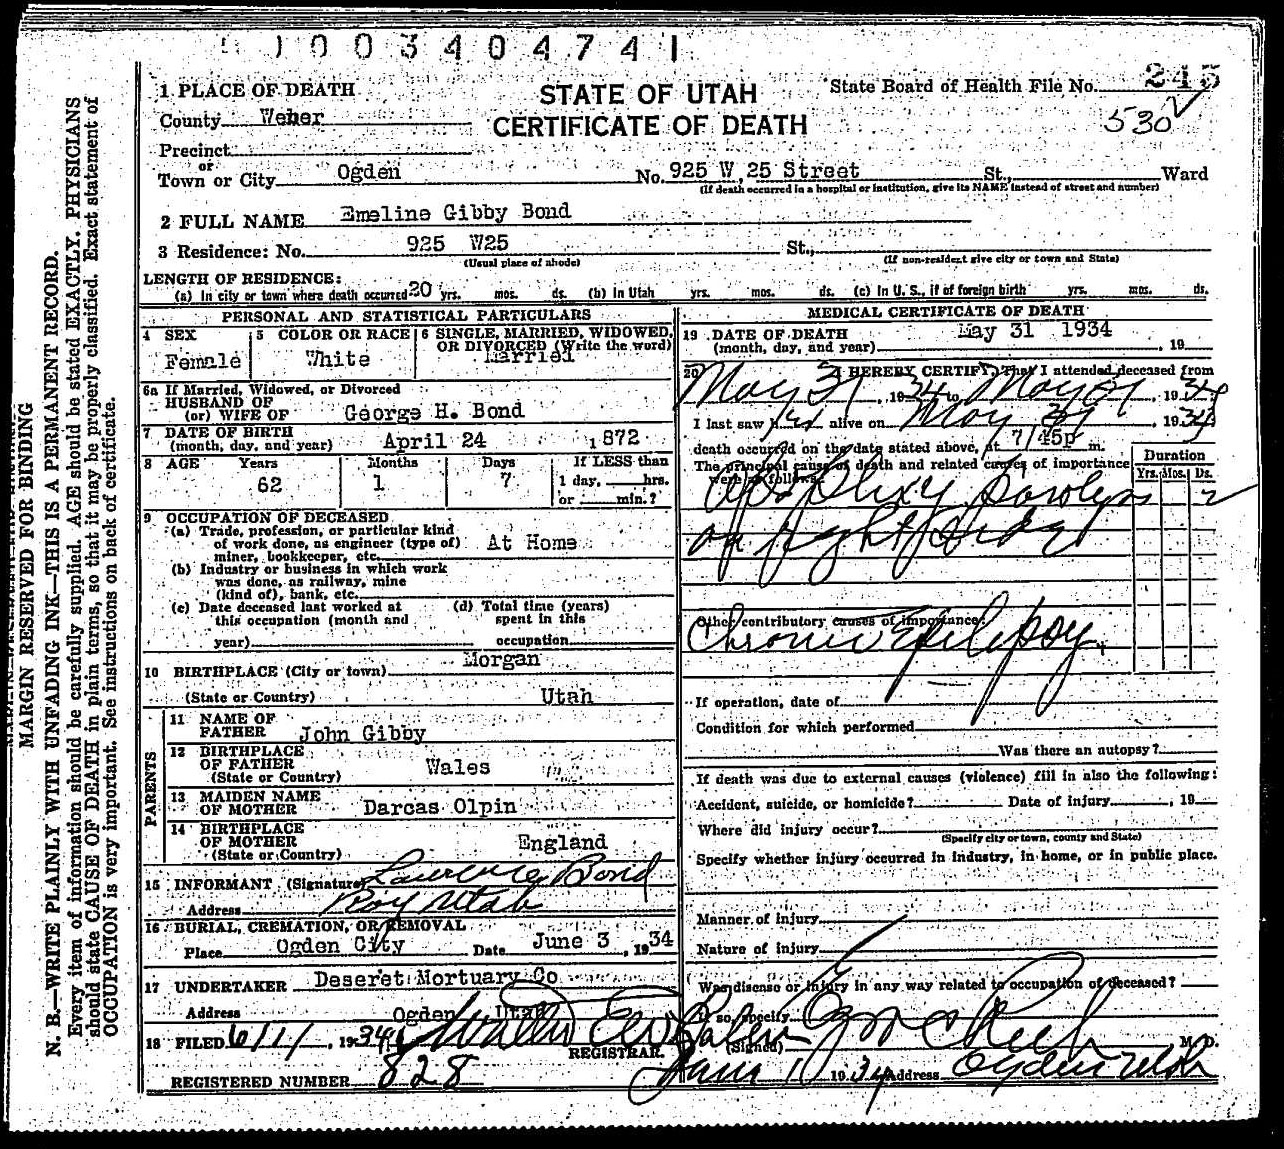 1003404741
1 PLACE OF DEATH
STATE OF UTAH
CERTIFICATE OF DEATH
State Board of Health File No. 245
530
County Weber
Precinct
or
Town or City Ogden No. 925 W, 25 Street St., Ward
(If death occurred in a hospital or institution, give its NAME instead of street and number)
2 FULL NAME Emeline Gibby Bond
3 Residence: No. 925 W25 St.,
(Usual place of abode) (If non-resident give city or town and State)
LENGTH OF RESIDENCE:
(a) In city or town where death occurred 20 yrs. mos. ds. (b) In Utah yrs. mos. ds. (c) In U. S., if of foreign birth yrs. mos. ds.
PERSONAL AND STATISTICAL PARTICULARS
4 SEX Female
5 COLOR OR RACE White
6 SINGLE, MARRIED, WIDOWED,
OR DIVORCED (Write the word)
Married
6a If Married, Widowed, or Divorced
HUSBAND OF
(or) WIFE OF George H. Bond
7 DATE OF BIRTH
(month, day, and year) April 24 1872
8 AGE Years Months Days If LESS than
62 1 7 1 day, hrs.
or min.?
9 OCCUPATION OF DECEASED
(a) Trade, profession, or particular kind
of work done, as engineer (type of)
miner, bookkeeper, etc. At Home
(b) Industry or business in which work
was done, as railway, mine
(kind of), bank, etc.
(c) Date deceased last worked at
this occupation (month and
year)
(d) Total time (years)
spent in this
occupation
10 BIRTHPLACE (City or town) Morgan
(State or Country) Utah
PARENTS
11 NAME OF
FATHER John Gibby
12 BIRTHPLACE
OF FATHER Wales
(State or Country)
13 MAIDEN NAME
OF MOTHER Darcas Olpin
14 BIRTHPLACE
OF MOTHER England
(State or Country)
15 INFORMANT (Signature) Lawrence Bond
Address Roy Utah
16 BURIAL, CREMATION, OR REMOVAL
Place Ogden City Date June 3, 1934
17 UNDERTAKER Deseret Mortuary Co
Address Ogden Utah
18 FILED 6/1/, 1934
REGISTRAR.
REGISTERED NUMBER 828
MEDICAL CERTIFICATE OF DEATH
19 DATE OF DEATH May 31 1934
(month, day, and year) , 19
20 I HEREBY CERTIFY, That I attended deceased from
May 31, 1934 to May 31, 1934
I last saw her alive on May 31, 1934
death occurred on the date stated above, at 7/45p m.
The principal cause of death and related causes of importance
were as follows:
Duration
Yrs. Mos. Ds.
Apoplexy Paralysis 2
of right side
Other contributory causes of importance:
Chronic Epilepsy
If operation, date of
Condition for which performed
Was there an autopsy?
If death was due to external causes (violence) fill in also the following:
Accident, suicide, or homicide? Date of injury , 19
Where did injury occur?
(Specify city or town, county and State)
Specify whether injury occurred in industry, in home, or in public place.
Manner of injury
Nature of injury
Was disease or injury in any way related to occupation of deceased?
If so, specify
(Signed) M. D.
June 1 1934 Address Ogden Utah
MARGIN RESERVED FOR BINDING
N. B.—WRITE PLAINLY WITH UNFADING INK—THIS IS A PERMANENT RECORD.
Every item of information should be carefully supplied. AGE should be stated EXACTLY. PHYSICIANS
should state CAUSE OF DEATH in plain terms, so that it may be properly classified. Exact statement of
OCCUPATION is very important. See instructions on back of certificate.